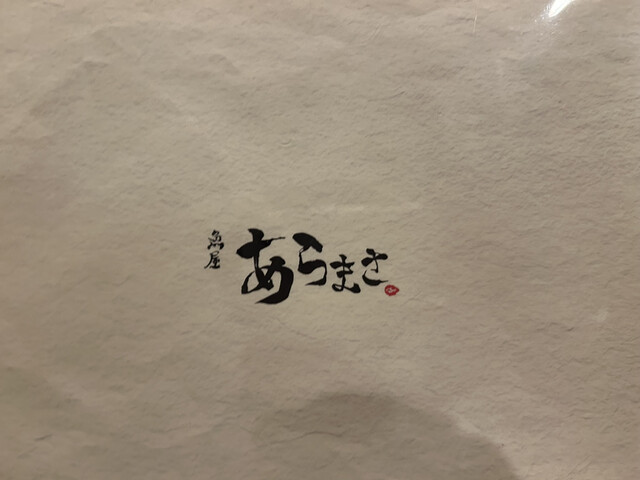 魚屋
あらまさ